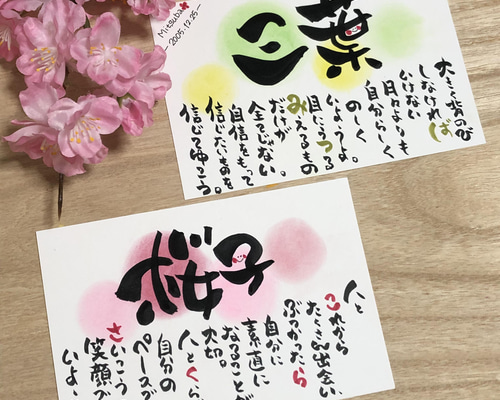 Mitsuba
- 2005.12.25 -
三葉
大きく背のび
しなければ
いけない
日々よりも
自分らしく
のしく
いようよ。
目にうつる
みえるもの
だけが
全てじゃない
自信をもって
信じたいものを
信じてゆこう。
桜子
人と
これから
たくさん出会い、
ぶつかったら
自分に
素直に
なることが
大切。
人とくら
自分の
ペースで
さいこう
笑顔で
いよ